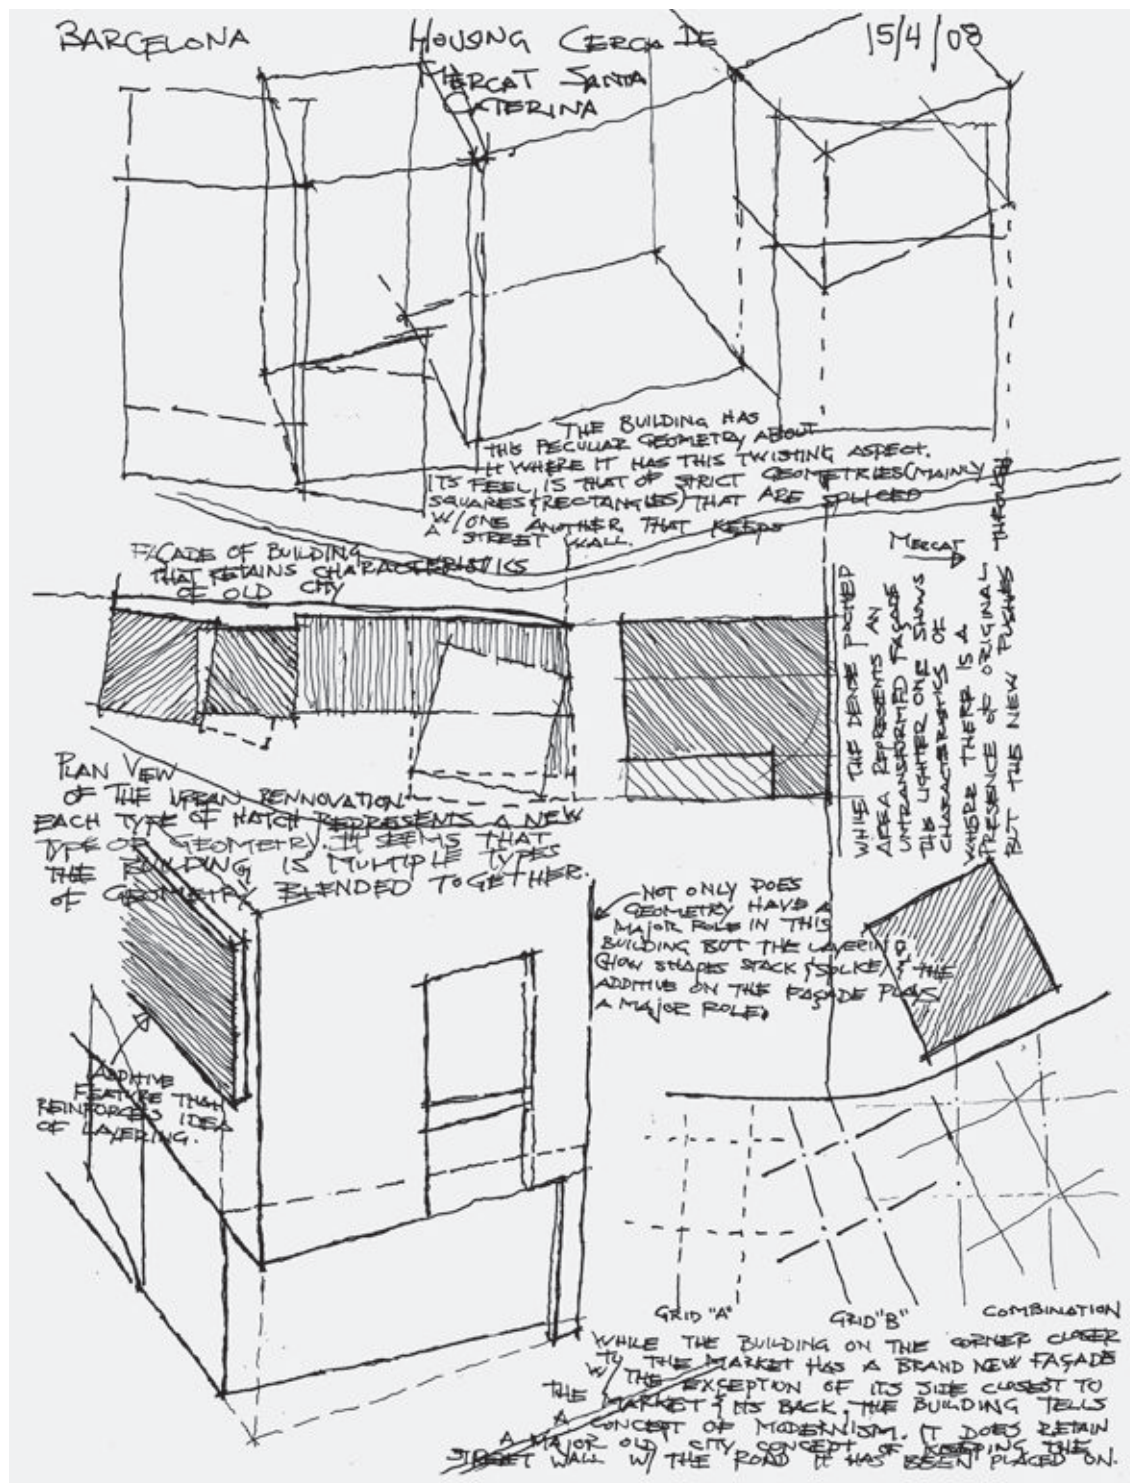 BARCELONA
HOUSING CERCA DE
MERCAT SANTA
CATERINA
15/4/08
THE BUILDING HAS
THIS PECULIAR GEOMETRY ABOUT
IT WHERE IT HAS THIS TWISTING ASPECT.
ITS FEEL IS THAT OF STRICT GEOMETRIES (MAINLY
SQUARES & RECTANGLES) THAT ARE SPLICED
W/ ONE ANOTHER THAT KEEPS
A STREET WALL.
FACADE OF BUILDING
THAT RETAINS CHARACTERISTICS
OF OLD CITY
MERCAT
WHILE THE DENSE PACKED
AREA REPRESENTS AN
UNTRANSFORMED FAÇADE
THE LIGHTER ONE SHOWS
CHARACTERISTICS OF
WHERE THERE IS A
PRESENCE OF ORIGINAL
BUT THE NEW PUSHES THROUGH
PLAN VIEW
OF THE URBAN RENNOVATION
EACH TYPE OF HATCH REPRESENTS A NEW
TYPE OF GEOMETRY. IT SEEMS THAT
THE BUILDING IS MULTIPLE TYPES
OF GEOMETRY BLENDED TOGETHER.
NOT ONLY DOES
GEOMETRY HAVE A
MAJOR ROLE IN THIS
BUILDING BUT THE LAYERING
(HOW SHAPES STACK & SPLICE) & THE
ADDITIVE ON THE FAÇADE PLAYS
A MAJOR ROLE.
ADDITIVE
FEATURE THAT
REINFORCES IDEA
OF LAYERING.
GRID "A"
GRID "B"
COMBINATION
WHILE THE BUILDING ON THE CORNER CLOSER
TO THE MARKET HAS A BRAND NEW FAÇADE
W/ THE EXCEPTION OF ITS SIDE CLOSEST TO
THE MARKET & ITS BACK. THE BUILDING TELLS
A CONCEPT OF MODERNISM. IT DOES RETAIN
A MAJOR OLD CITY CONCEPT OF KEEPING THE
STREET WALL W/ THE ROAD IT HAS BEEN PLACED ON.